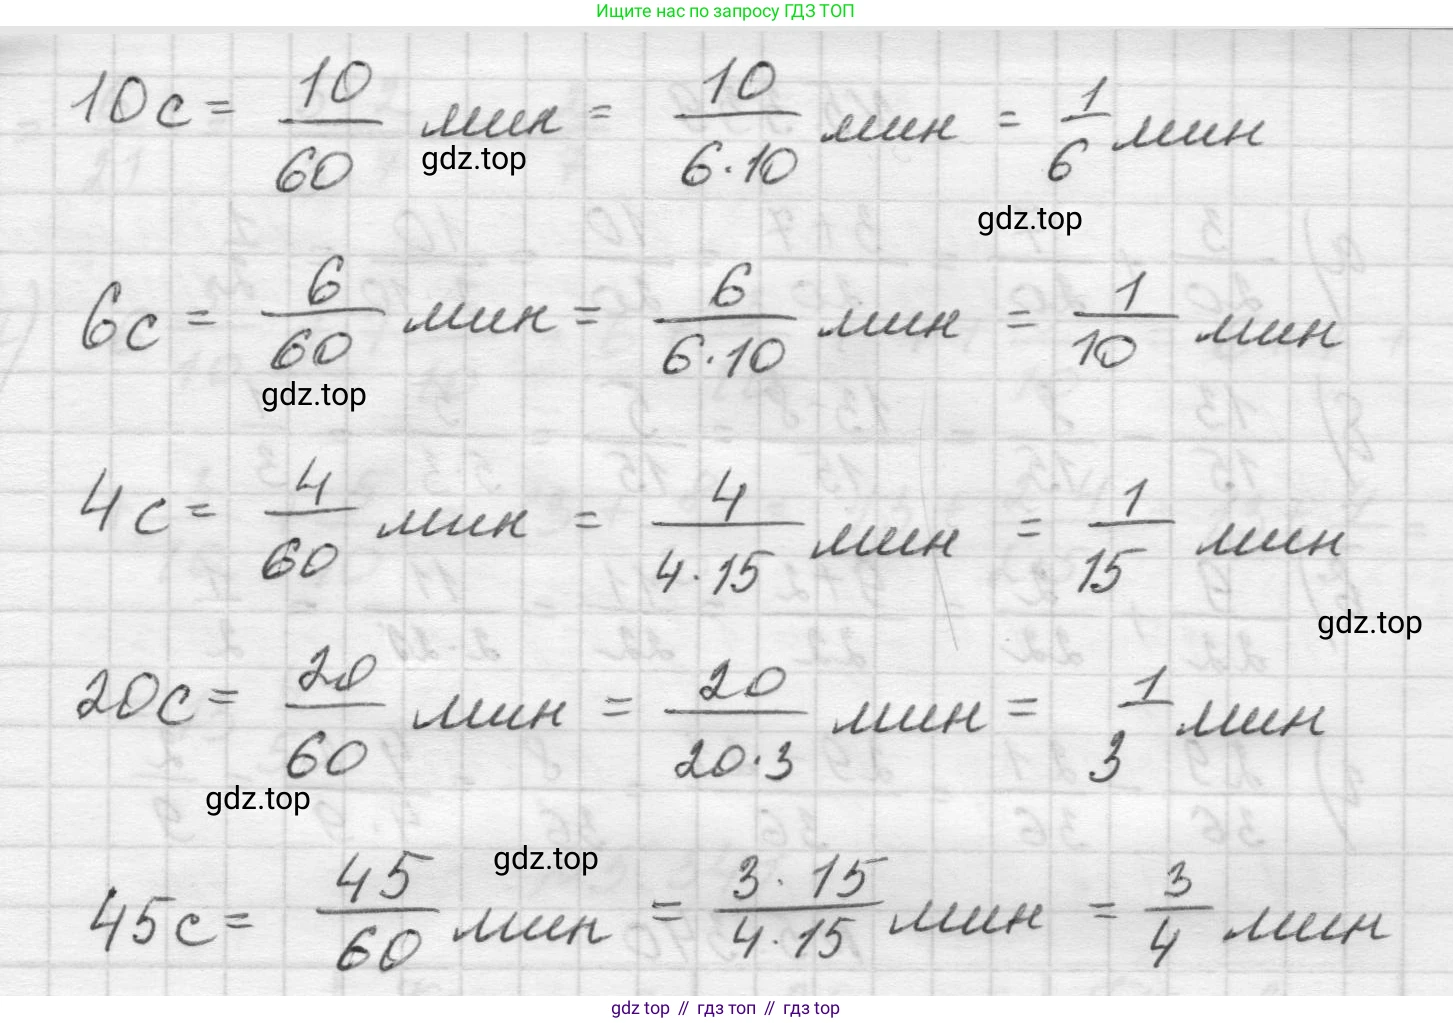 Ищите нас по запросу ГДЗ ТОП
10 с = 10/60 мин = 10/(6·10) мин = 1/6 мин
gdz.top
gdz.top
6 с = 6/60 мин = 6/(6·10) мин = 1/10 мин
gdz.top
4 с = 4/60 мин = 4/(4·15) мин = 1/15 мин
gdz.top
20 с = 20/60 мин = 20/(20·3) мин = 1/3 мин
gdz.top
gdz.top
45 с = 45/60 мин = (3·15)/(4·15) мин = 3/4 мин
gdz top // гдз топ // gdz top